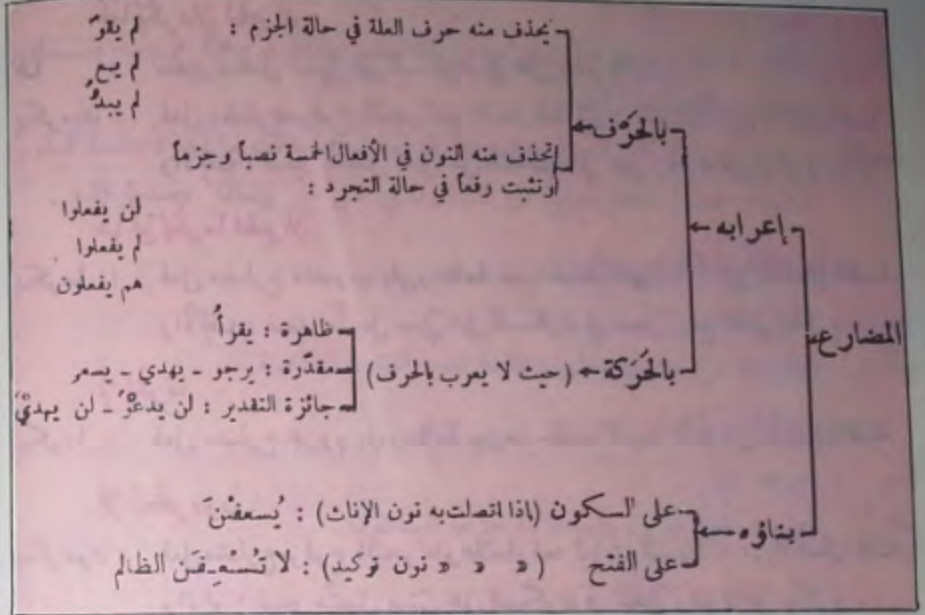 المضارع
إعرابه
بالحَرْف
يحذف منه حرف العلة في حالة الجزم :
لم يقوَ
لم يسع
لم يبدُ
تحذف منه النون في الأفعال الخمسة نصباً وجزماً
وتثبت رفعاً في حالة التجرد :
لن يفعلوا
لم يفعلوا
هم يفعلون
بالحَرَكة (حيث لا يعرب بالحرف)
ظاهرة : يقرأُ
مقدّرة : يرجو - يهدي -
جائزة التقدير : لن يدعوْ َ - لن يهديْ َ
بناؤه
على السكون (إذا اتصلت به نون الإناث) : يُسعفْنَ
على الفتح ( » » » نون توكيد) : لا تُسْعِفَنَ الظالم